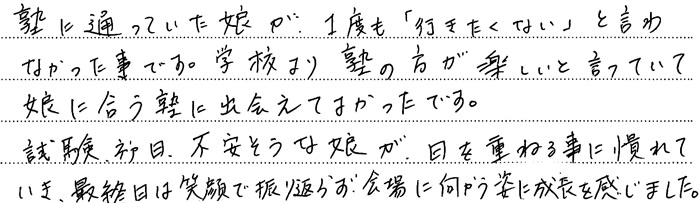 塾に通っていた娘が、1度も「行きたくない」と言わ
なかった事です。学校より塾の方が楽しいと言っていて
娘に合う塾に出会えてよかったです。
試験、初日、不安そうな娘が、日を重ねる事に慣れて
いき、最終日は笑顔で振り返らず会場に向かう姿に成長を感じました。